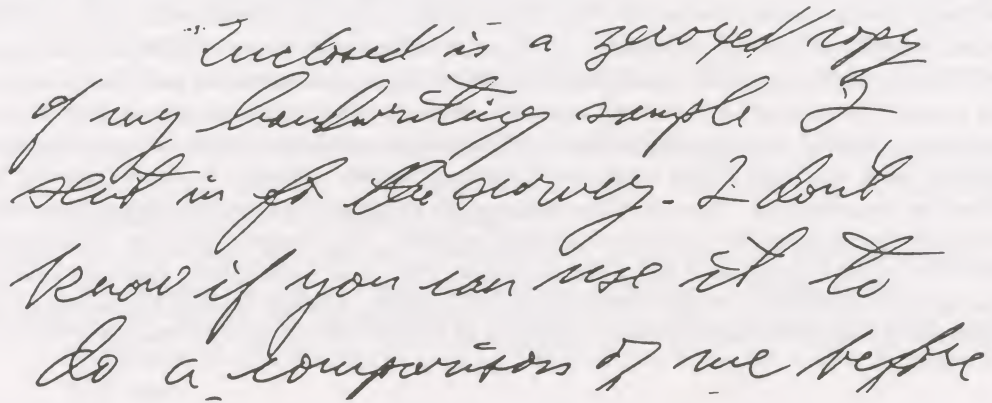 Enclosed is a zeroxed copy
of my handwriting sample I
sent in for the survey. I don't
know if you can use it to
do a comparison of me before